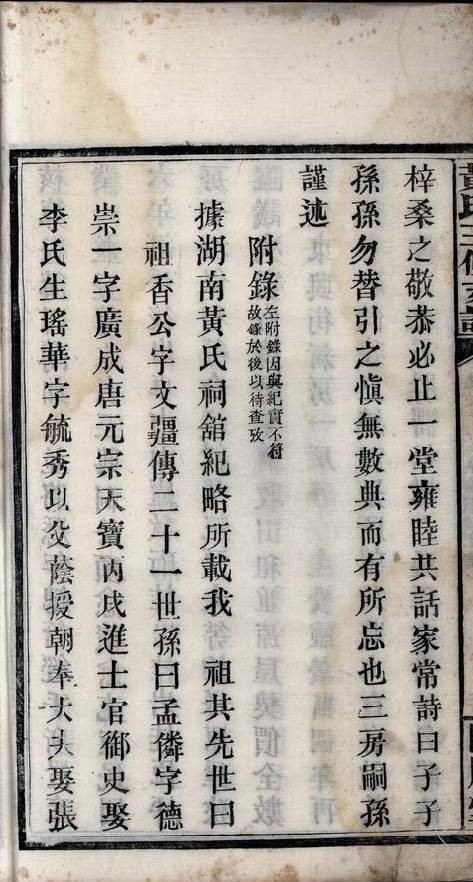 梓桑之敬恭必止一堂雍睦共話家常詩曰子子
孫孫勿替引之慎無數典而有所忘也三房嗣孫
謹述
附錄
左附錄因與紀實不符
故錄於後以待查攷
據湖南黃氏祠舘紀略所載我　祖其先世曰
祖香公字文疆傳二十一世孫曰孟儕字德
崇一字廣成唐元宗天寶丙戌進士官御史娶
李氏生瑤華字毓秀以父蔭授朝奉大夫娶張